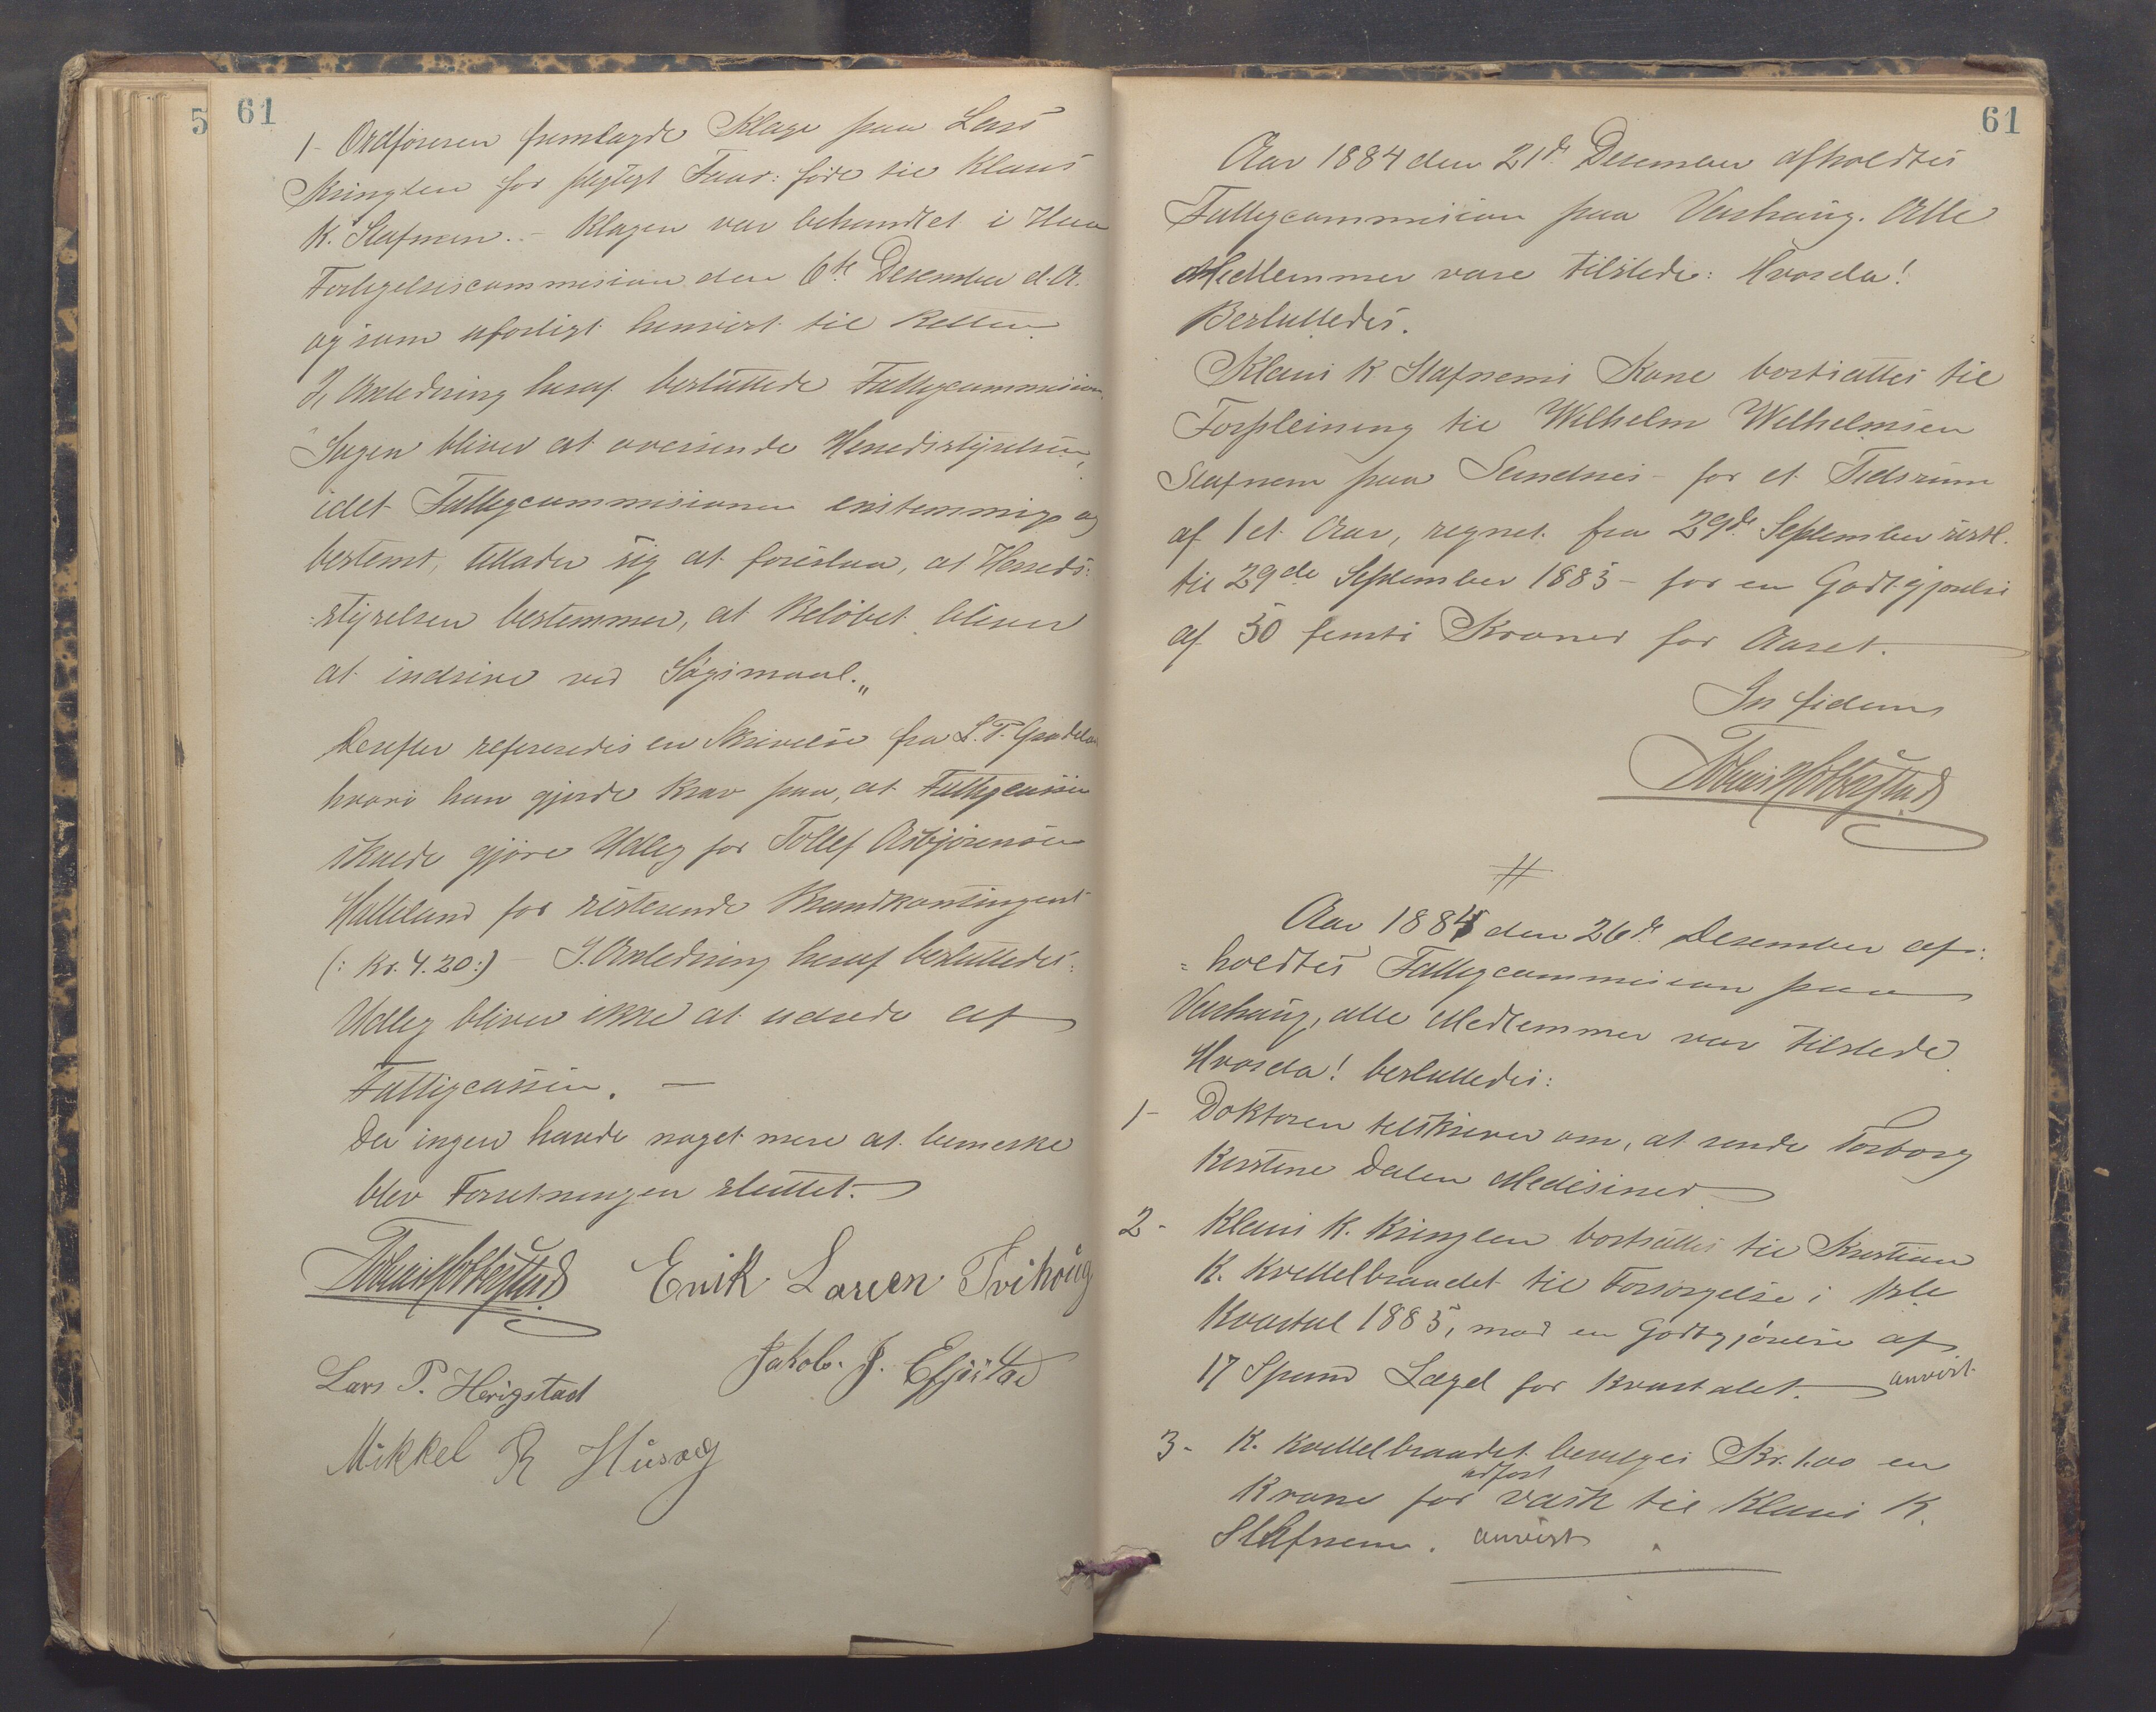 5
61
1- Ordføreren fremlagde Klage paa Lars
Kringlen for pligtigt Faar: føde til Klaus
K. Stafnem. - Klagen var behandlet i Haa
Forligelsescommission den 6te Desember d.A.
og som uforligt henvist til Retten.
I Anledning heraf besluttede Fattigcommission
"Sagen bliver at oversende Herredsstyrelsen,
idet Fattigcommisionen enstemmigt og
bestemt, tillader sig at foreslaa, at Herreds:
:styrelsen bestemmer, at Beløbet bliver
at inddrive ved Søgsmaal.„
Derefter refereredes en Skrivelse fra L. T.
hvori han gjorde Krav paa, at Fattigcassen
skulde gjøre Udlæg for Tollef Asbjørnsen
Hatteland for resterende Brandkontingent
(: Kr. 4.20:) - I Anledning heraf besluttedes:
Udlæg bliver ikke at udrede af
Fattigcassen. -
Da ingen havde noget mere at bemerke
blev Forretningen sluttet.
Erik Larsen Tvihoug
Lars P. Herigstad
Jakob. J.
Mikkel R Husvæg
61
Aar 1884 den 21de Desember afholdtes
Fattigcommision paa Varhaug. Alle
Medlemmer vare tilstede: Hvorda!
Besluttedes.
Klaus K Stafnems Kone bortsattes til
Forpleining til Wilhelm Wilhelmsen
Stafnem paa Sandnes - for et Tidsrum
af 1 et Aar, regnet fra 29de September sistl.
til 29de September 1885 - for en Godtgjørelse
af 50 femti Kroner for Aaret.
In fidem
#
Aar 1884 den 26de Desember af:
=holdtes Fattigcommision paa
Varhaug, alle Medlemmer var tilstede.
Hvorda! besluttedes:
1- Doktoren tilskriver om, at sende Torborg
Kirstine Dalen Medisiner
2- Klaus K. Kringlen bortsattes til Kristian
K. Kvettelbraadet til Forsørgelse i 1ste
Kvartal 1885, mod en Godtgjørelse af
17 Spand for Kvartalet. anvist
3- K. Kvettelbraadet bevilges Kr. 1.00 en
Krone for udført vask til Klaus K.
Stafnem. anvist